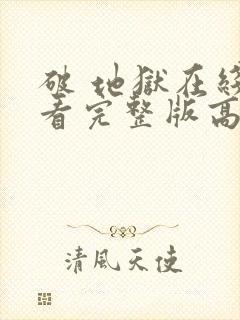 破 地獄在
看完整版高
清風天使